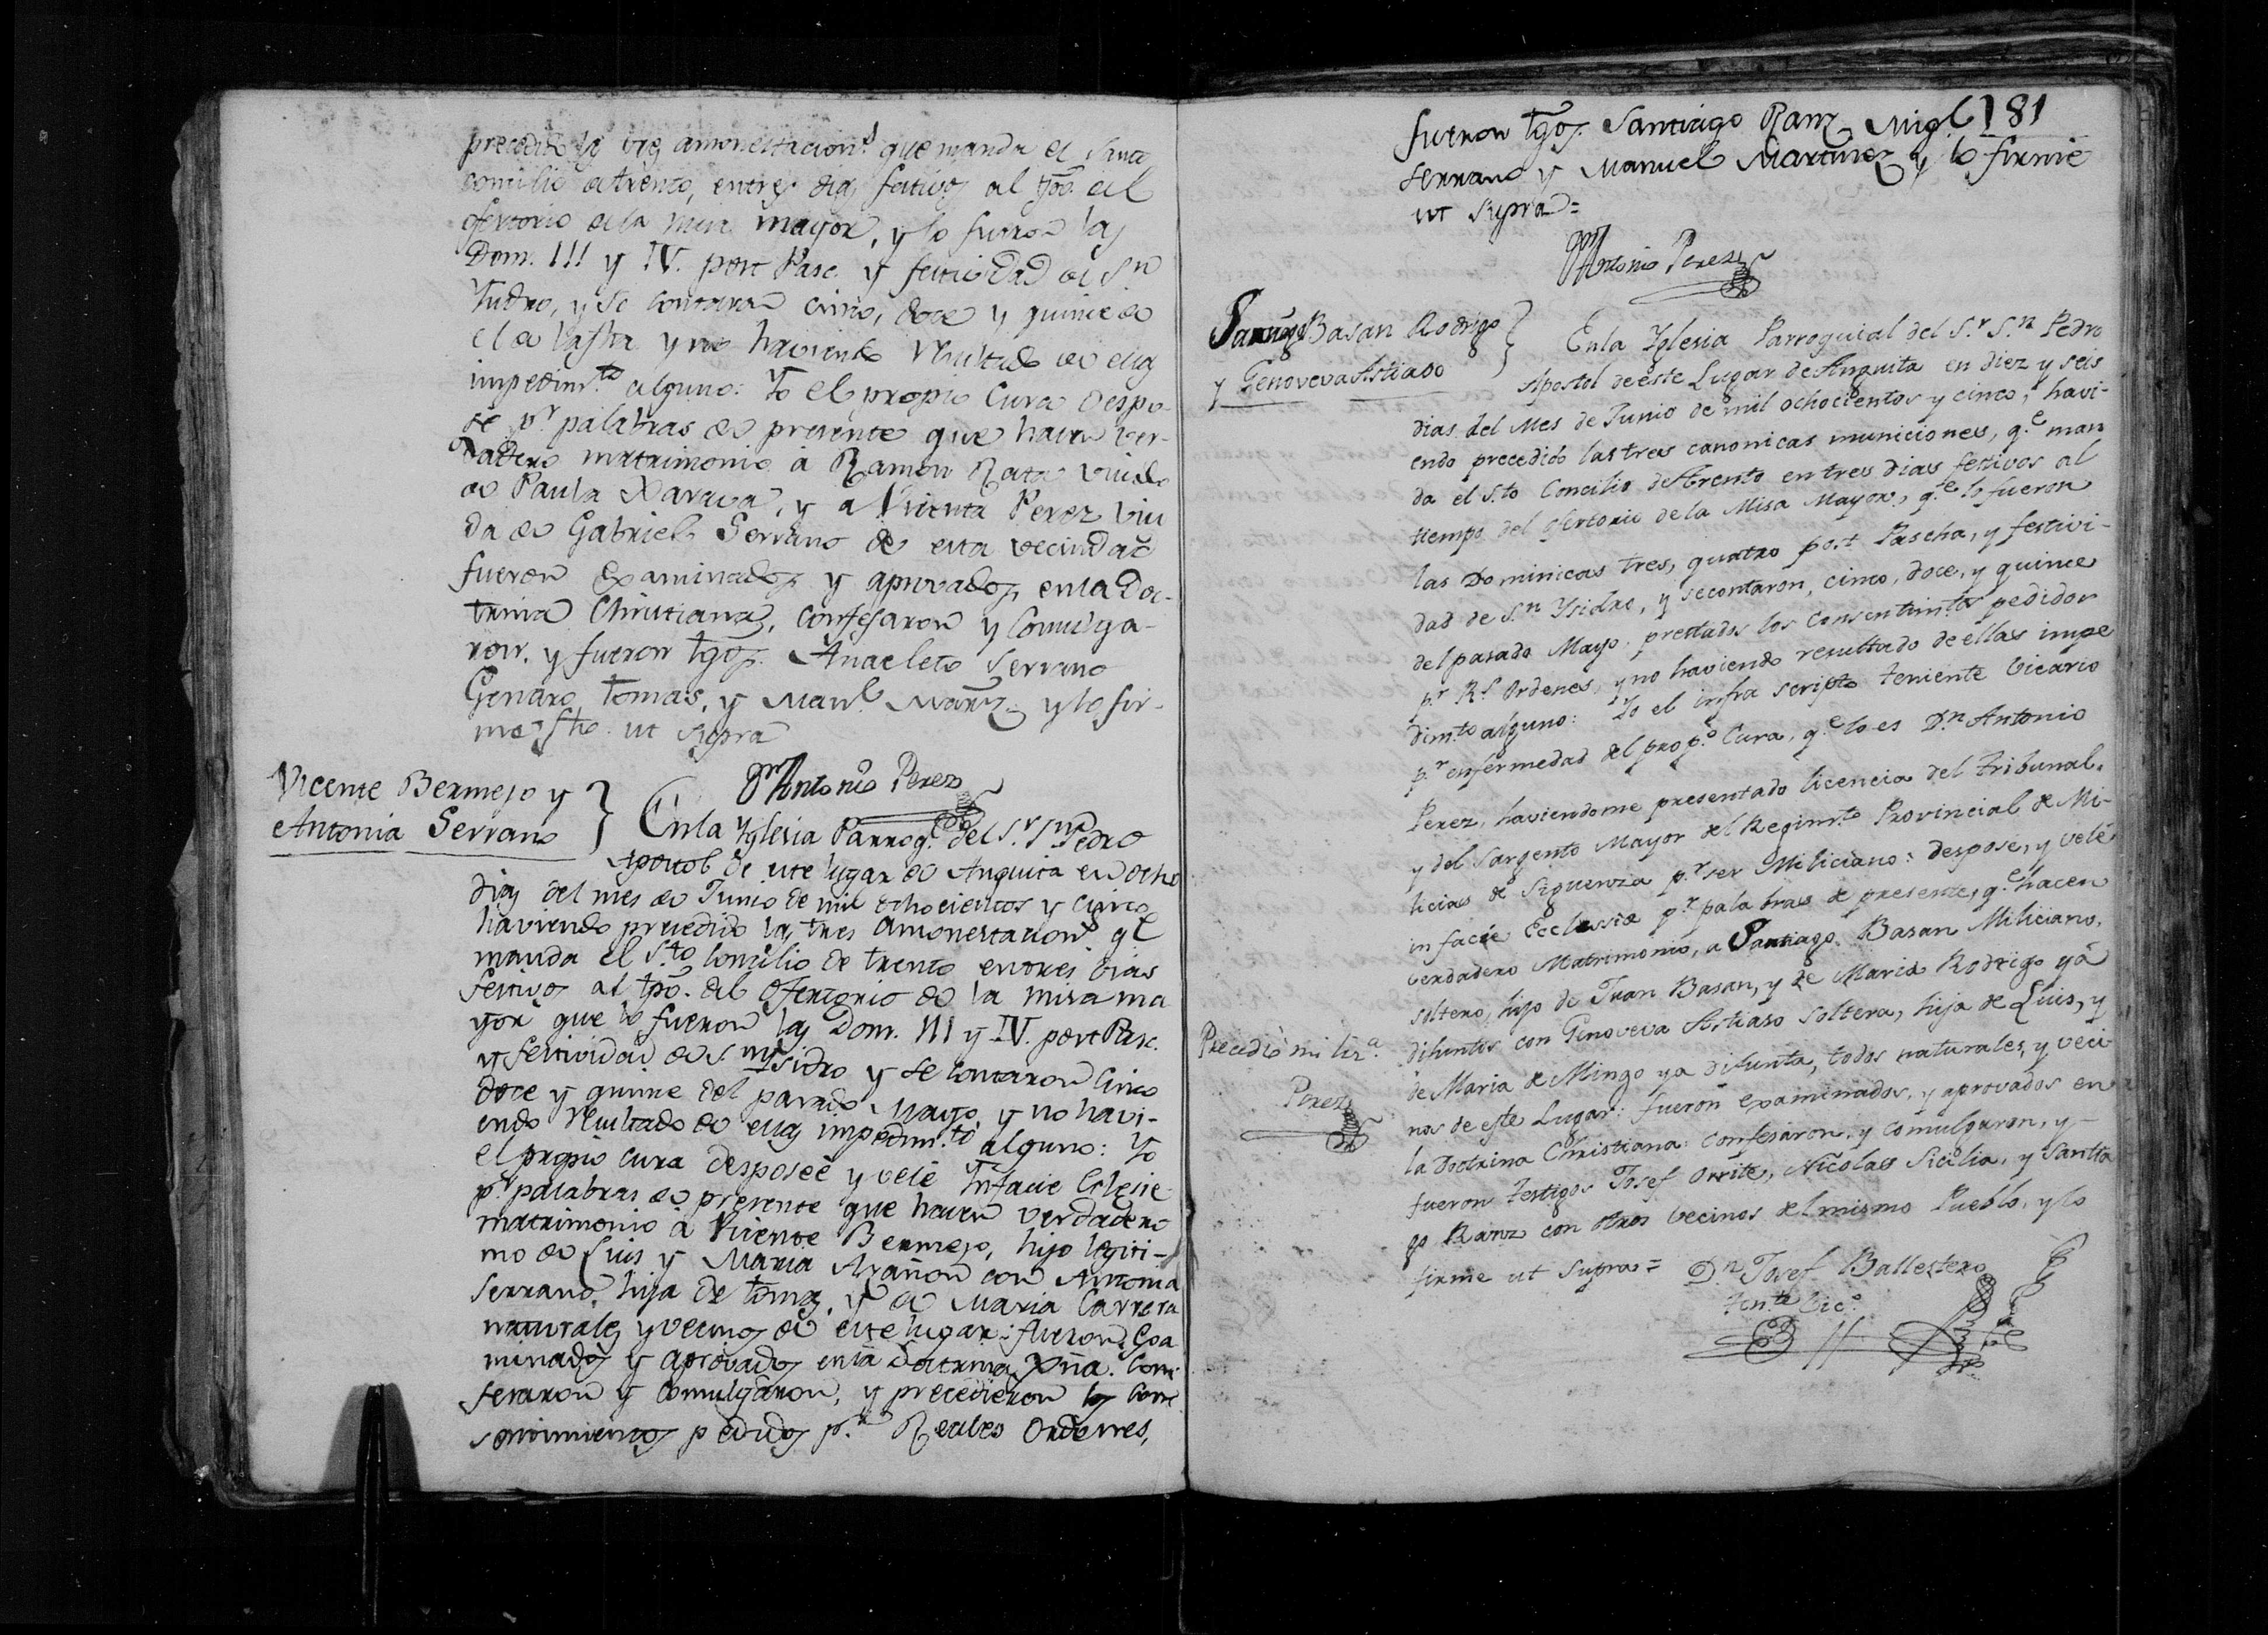 precedido las tres amonestacion.s que manda el Santo
concilio de trento, entres dias festivos al tpo. del
ofertorio de la misa mayor, y lo fueron las
Dom. III y IV. post Pasc. y festividad de S.n
Ysidro, y se contaron cinco, doce y quince de
el de la fha y no haviendo resultado de ellas
impedim.to alguno: Yo el propio Cura despo-
sé p.r palabras de presente que hacen ver-
dadero matrimonio à Ramon Rata viudo
de Paula y a Vicenta Perez viu
da de Gabriel Serrano de esta vecindad
fueron examinados y aprovados en la Doc-
trina Christiana, confesaron y comulga-
ron, y fueron tgos. Anacleto Serrano
Genaro tomas, y Man.l Mārz y lo fir-
me fho. ut supra
Antonio Perez
Vicente Bermejo y
Antonia Serrano
Enla Yglesia Parroq.l del S.r S.n Pedro
Apostol de este lugar de Anguita en ocho
dias del mes de Junio de mil ochocientos y cinco
haviendo precedido las tres amonestacion.s q.e
manda el S.to Concilio de trento entres dias
festivos al tpo. del Ofertorio de la misa ma
yor que lo fueron las Dom. III y IV. post Pasc.
y festividad de S.n Ysidro y se contaron cinco
doce y quince del pasado Mayo, y no havi-
endo resultado de ellas impedim.to alguno: Yo
el propio cura desposeé y velé Infacie Eclesie
p.r palabras de presente que hacen verdadero
matrimonio à Vicente Bermejo, hijo legiti-
mo de Luis y Maria Arañon con Antonia
Serrano, hija de tomas, y de Maria Carrera
naturales y vecinos de este lugar: fueron Exa
minados y aprovados en la Doctrina Xña. Con
fesaron y comulgaron, y precedieron los con
sentimientos pedidos p.r Reales Ordenes,
181
fueron tgos. Santiago Ranz Migl.
Serrano y Manuel Martinez y lo firmé
ut supra=
Antonio Perez
Santiago Basan Rodrigo
y Genoveva Astiaso
Enla Yglesia Parroquial del S.r S.n Pedro
Apostol de este Lugar de Anguita en diez y seis
dias del Mes de Junio de mil ochocientos y cinco, havi-
endo precedido las tres canonicas municiones, q.e man
da el S.to Concilio de trento en tres dias festivos al
tiempo del ofertorio de la Misa Mayor, q.e lo fueron
las Dominicas tres, quatro post Pascha, y festivi-
dad de S.n Ysidro, y se contaron, cinco, doce, y quince
del pasado Mayo. prestados los Consentim.tos pedidos
p.r R.s Ordenes, y no haviendo resultado de ellas impe
dim.to alguno: Yo el infra scripto teniente Vicario
p.r enfermedad del prop.o Cura, q.e lo es D.n Antonio
Perez, haviendome presentado licencia del tribunal,
y del Sargento Mayor del Regim.to Provincial de Mi-
licias de Siguenza p.r ser Miliciano: despose, y velé
in facie Ecclesiæ p.r palabras de presente, q.e hacen
verdadero Matrimonio, a Santiago Basan Miliciano,
soltero, hijo de Juan Basan, y de Maria Rodrigo ya
difuntos con Genoveva Astiaso soltera, hija de Luis, y
de Maria de Mingo ya difunta, todos naturales, y veci
nos de este Lugar: fueron examinados, y aprovados en
la Doctrina Christiana: confesaron, y comulgaron, y-
fueron testigos Josef Orrite, Nicolas Sicilia, y Santia
go Ranz con otros vecinos del mismo Pueblo, y lo
firme ut supra= D.n Josef Ballestero
Ten.te Vic.o
Precedió mi liz.a
Perez